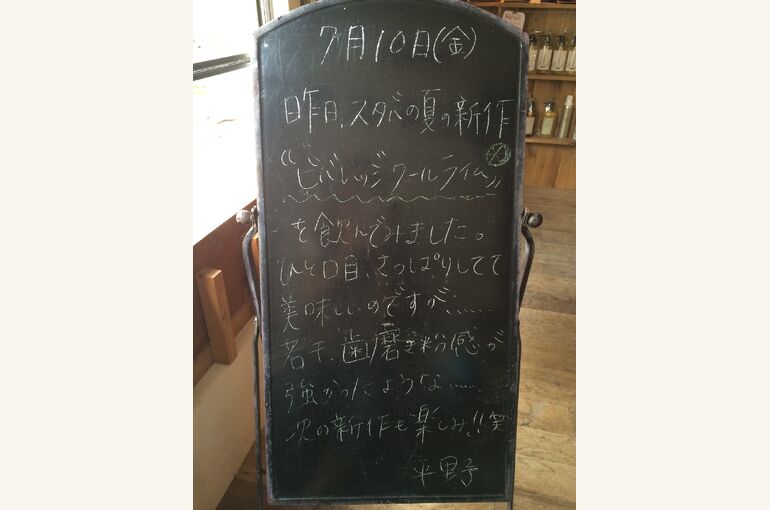 7月10日(金)
昨日、スタバの夏の新作
“ビバレッジクールライム”
を飲んでみました。
ひと口目、さっぱりしてて
美味しいのですが……
若干、歯磨き粉感が
強かったような……
次の新作も楽しみ!!笑
平野